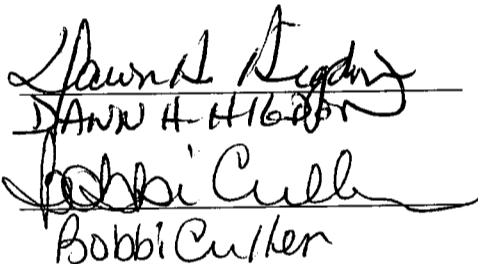 Dawn H. Higdon
DAWN H. HIGDON
Bobbi Cullen
Bobbi Cullen